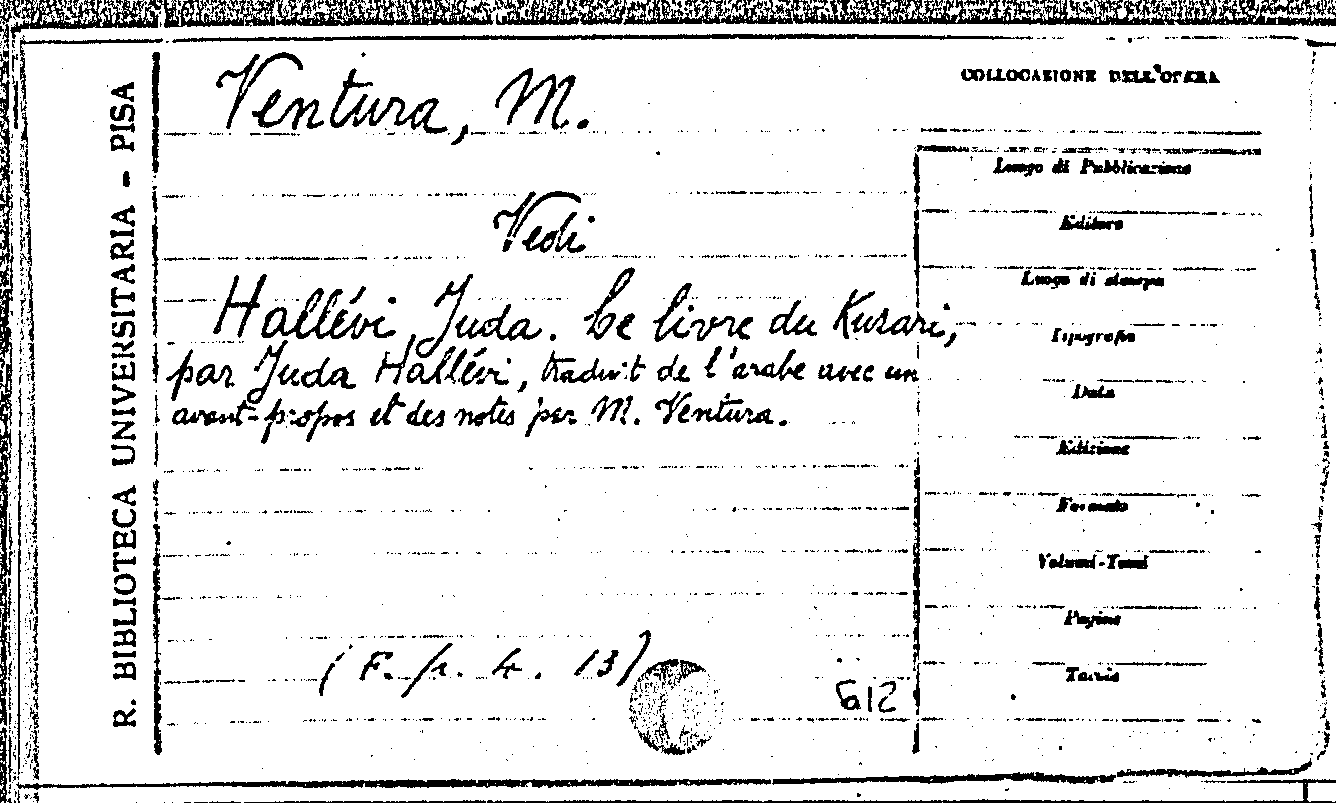 R. BIBLIOTECA UNIVERSITARIA - PISA
Ventura, M.
Vedi
Hallévi, Juda. Le livre du Kusari,
par Juda Hallévi, traduit de l'arabe avec un
avant-propos et des notes par M. Ventura.
(F. p. 4. 13)
612
COLLOCAZIONE DELL'OPERA
Luogo di Pubblicazione
Editore
Luogo di stampa
Tipografia
Data
Edizione
Formato
Volumi-Tomi
Pagine
Tavole